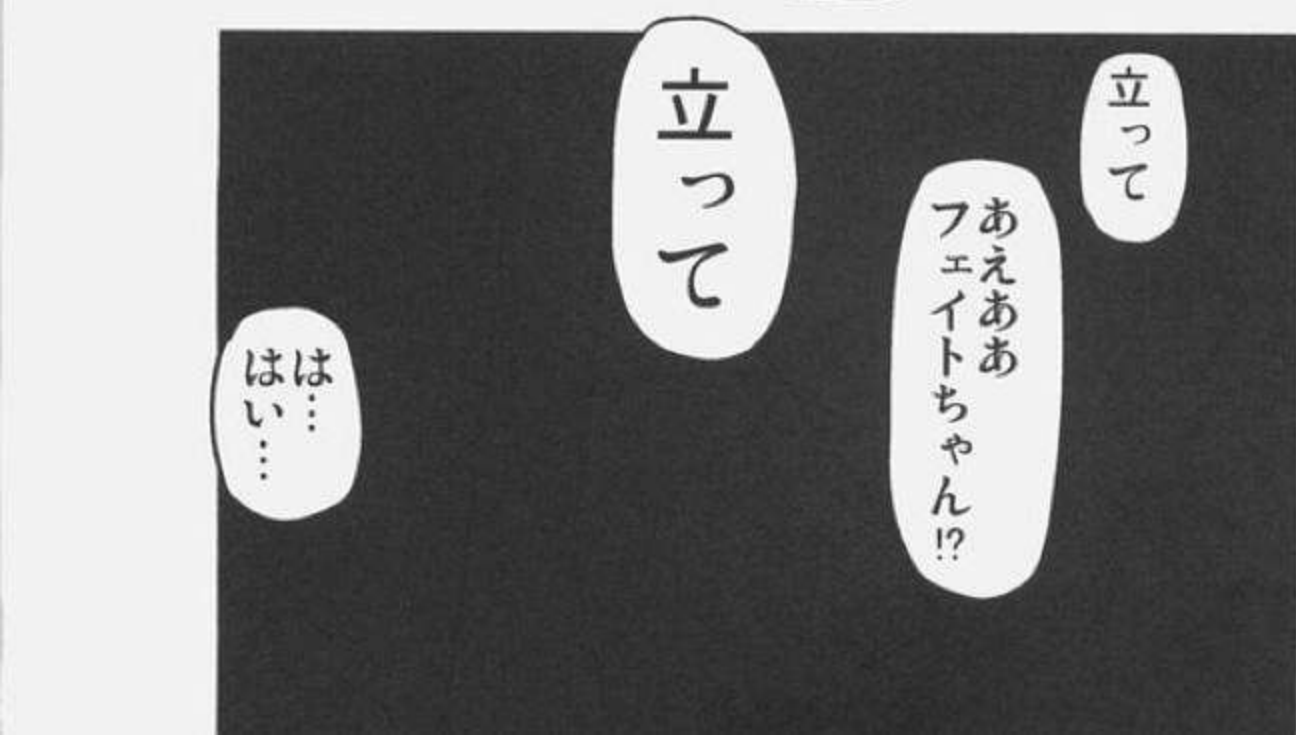 立って
あえああ
フェイトちゃん!?
立って
は…
はい…